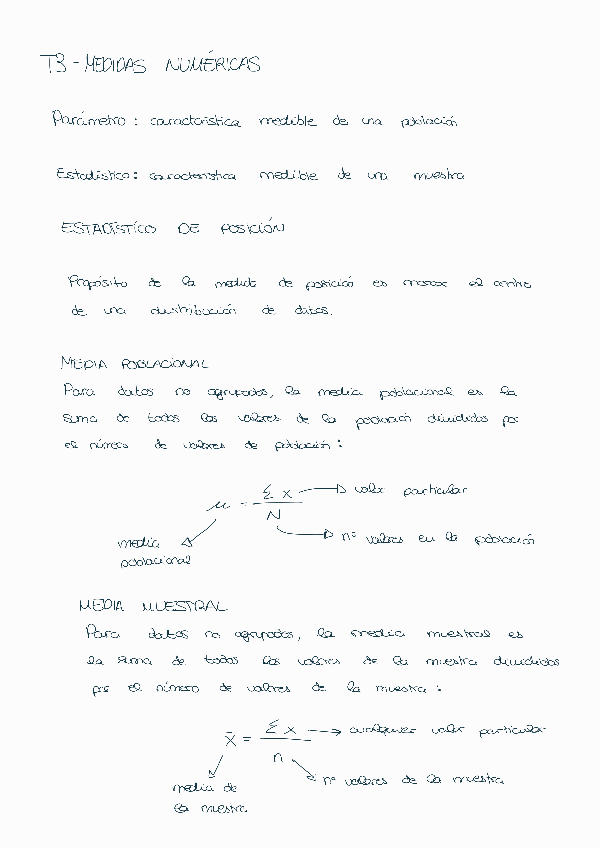 T3 - MEDIDAS NUMÉRICAS
Parámetro : característica medible de una población
Estadístico : característica medible de una muestra
ESTADÍSTICO DE POSICIÓN
Propósito de la medida de posición es mostrar el centro
de una distribución de datos.
MEDIA POBLACIONAL
Para datos no agrupados, la media poblacional es la
suma de todos los valores de la población divididos por
el número de valores de población :
μ = Σx / N
valor particular
nº valores en la población
media
poblacional
MEDIA MUESTRAL
Para datos no agrupados, la media muestral es
la suma de todos los valores de la muestra divididos
por el número de valores de la muestra :
x̄ = Σx / n
cualquier valor particular
nº valores de la muestra
media de
la muestra